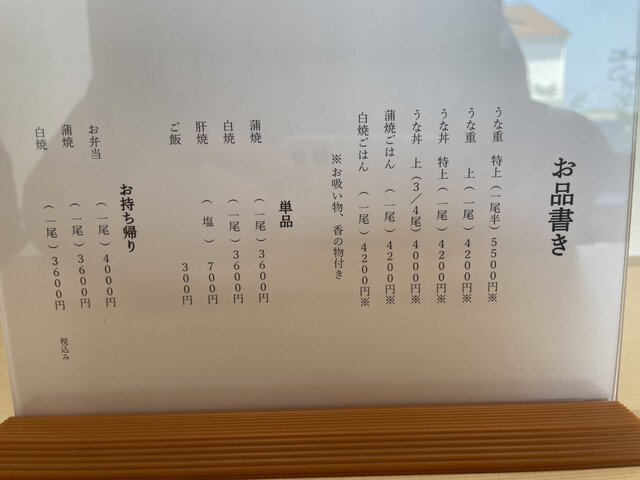 お品書き
うな重 特上(一尾半)5500円※
うな重 上(一尾)4200円※
うな丼 特上(一尾)4200円※
うな丼 上(3/4尾)4000円※
蒲焼ごはん (一尾)4200円※
白焼ごはん (一尾)4200円※
※お吸い物、香の物付き
単品
蒲焼 (一尾)3600円
白焼 (一尾)3600円
肝焼 (塩) 700円
ご飯 300円
お持ち帰り
お弁当 (一尾)4000円
蒲焼 (一尾)3600円
白焼 (一尾)3600円
税込み